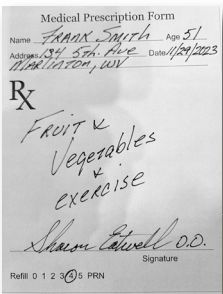 Medical Prescription Form
Name FRANK SMITH Age 51
Address 134 5th. Ave Date 11/29/2023
MARLINTON, WV
Rx
FRUIT &
Vegetables
+
exercise
Sharon Eatwell D.O.
Signature
Refill 0 1 2 3 4 5 PRN